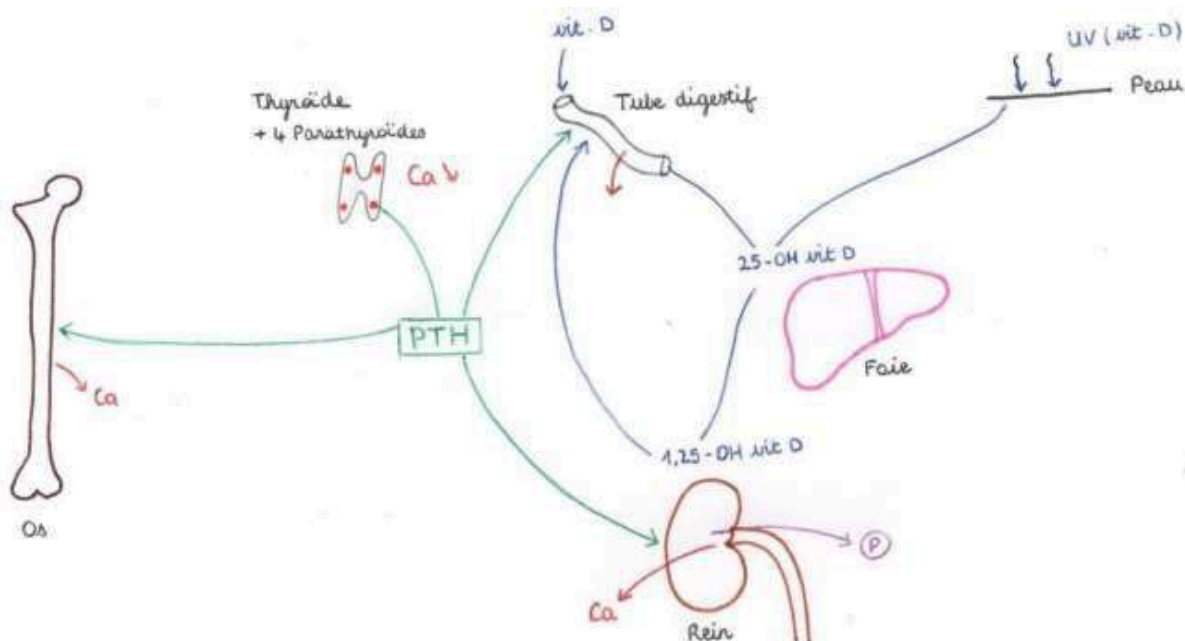 vit. D
UV (vit. D)
Peau
Thyroïde
+ 4 Parathyroïdes
Tube digestif
Ca ↘
25-OH vit D
PTH
Faie
Ca
1,25-OH vit D
Os
P
Ca
Rein